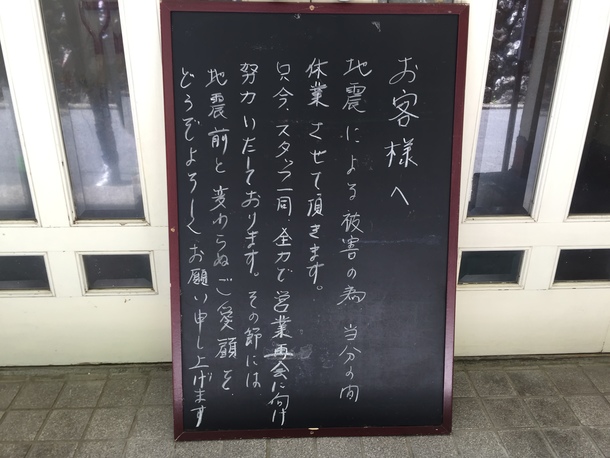 お客様へ
地震による被害の為 当分の間
休業させて頂きます。
只今、スタッフ一同、全力で営業再会に向け
努力いたしております。その節には
地震前と変わらぬご愛顧を
どうぞよろしくお願い申し上げます